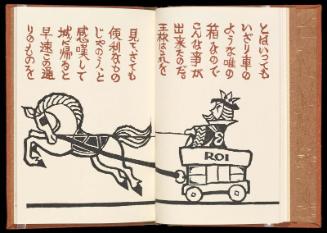 とはいっても
いざり車の
ような唯の
箱なので
こんな事が
出来たのだ
王様はこれを
ROI
見て、さても
便利なもの
じゃのう、と
感嘆して
城に帰ると
早速この通
りのものを